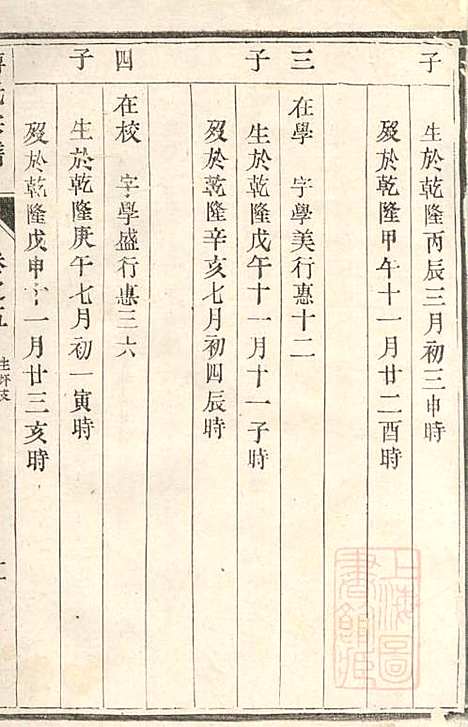 子
生於乾隆丙辰三月初三申時
歿於乾隆甲午十一月廿二酉時
三子
在學 字學美行惠十二
生於乾隆戊午十一月十一子時
歿於乾隆辛亥七月初四辰時
四子
在校 字學盛行惠三六
生於乾隆庚午七月初一寅時
歿於乾隆戊申十一月廿三亥時
上海圖書館藏